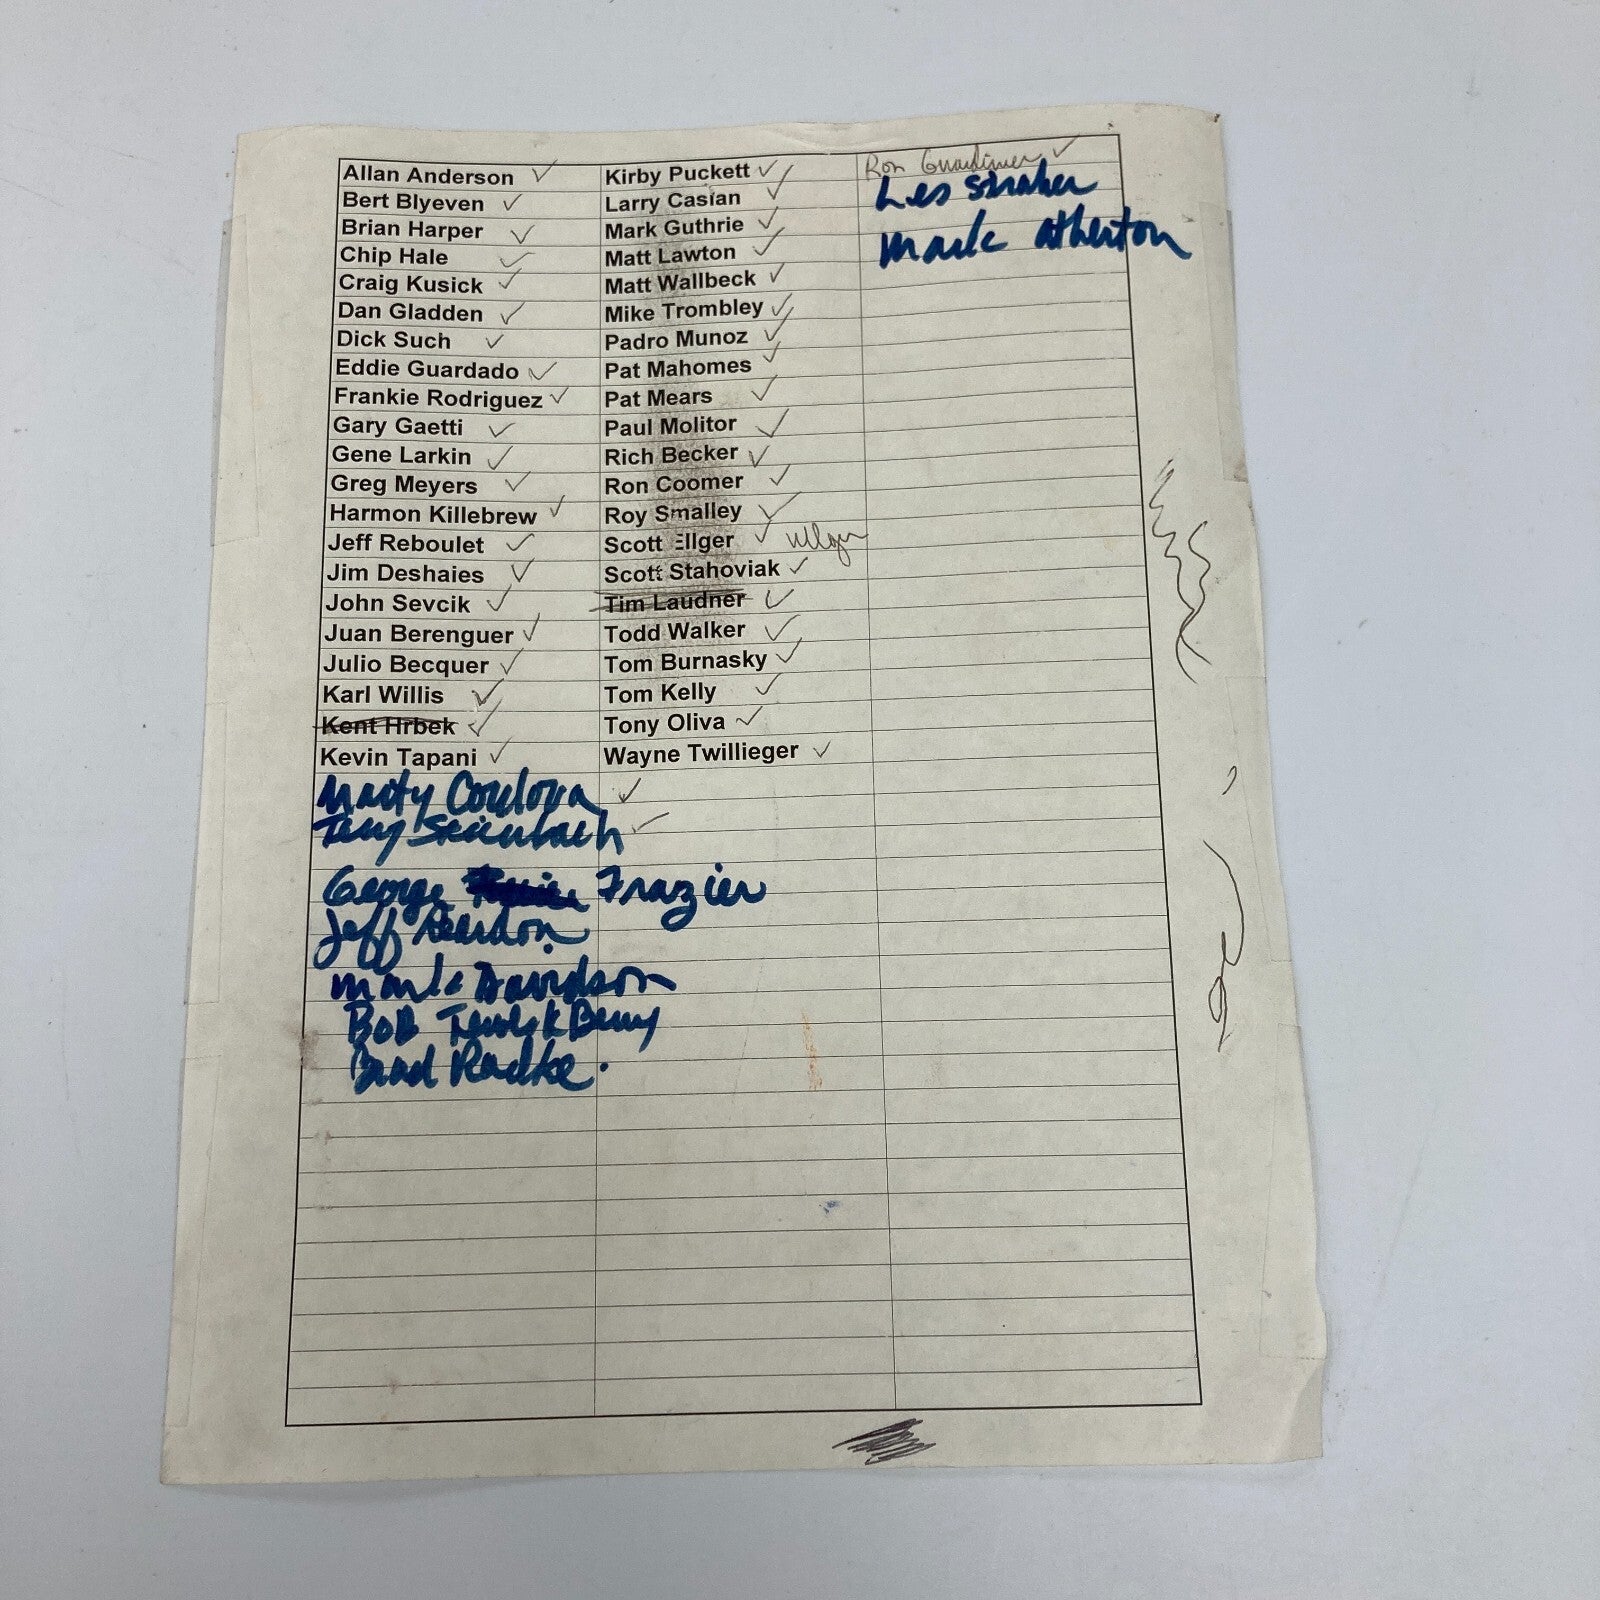 Allan Anderson
Bert Blyeven
Brian Harper
Chip Hale
Craig Kusick
Dan Gladden
Dick Such
Eddie Guardado
Frankie Rodriguez
Gary Gaetti
Gene Larkin
Greg Meyers
Harmon Killebrew
Jeff Reboulet
Jim Deshaies
John Sevcik
Juan Berenguer
Julio Becquer
Karl Willis
Kent Hrbek
Kevin Tapani
Marty Cordova
Terry Steinbach
George Frazier
Jeff Reardon
Mark Davidson
Bob
Brad Radke.
Kirby Puckett
Larry Casian
Mark Guthrie
Matt Lawton
Matt Wallbeck
Mike Trombley
Padro Munoz
Pat Mahomes
Pat Mears
Paul Molitor
Rich Becker
Ron Coomer
Roy Smalley
Scott Ellger
Scott Stahoviak
Tim Laudner
Todd Walker
Tom Burnasky
Tom Kelly
Tony Oliva
Wayne Twillieger
Ron
Les Straker
Mark Atherton